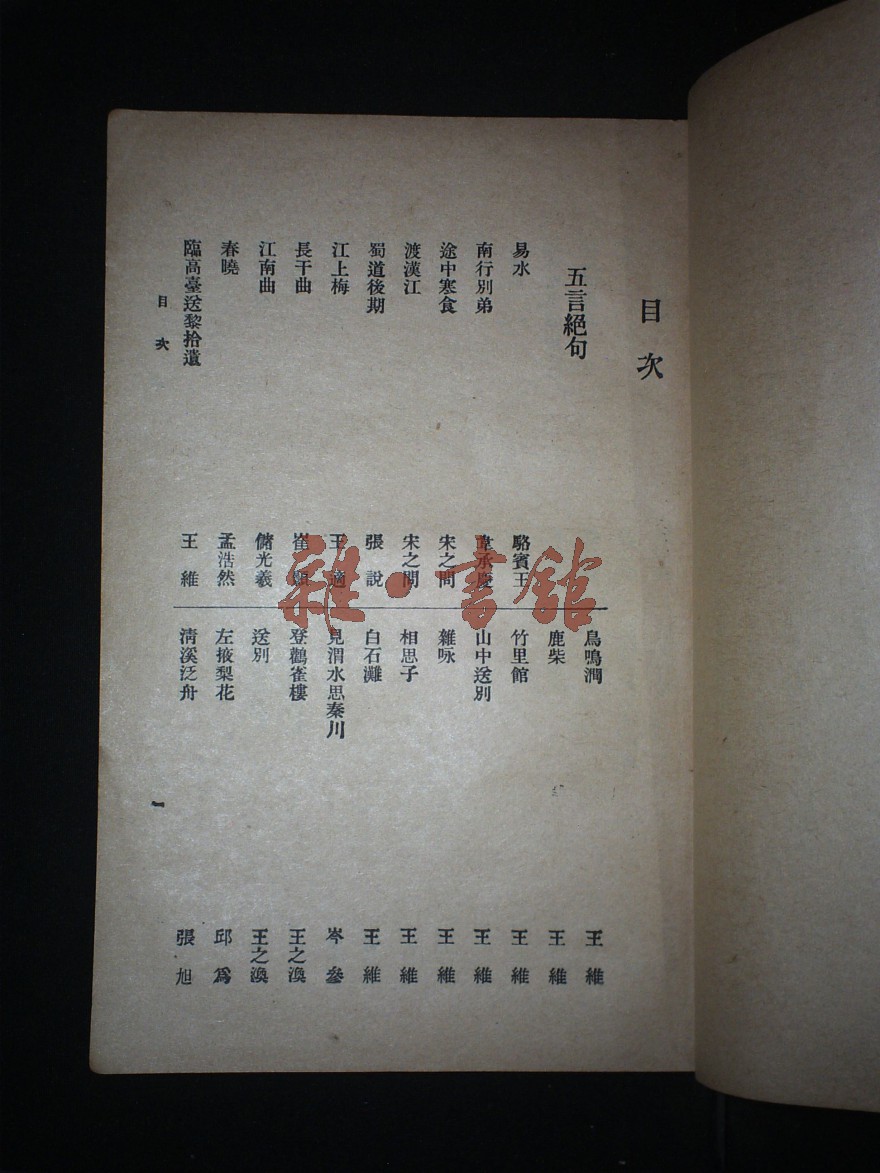 目次
五言絕句
易水 駱賓王
南行別弟 韋承慶
途中寒食 宋之問
渡漢江 宋之問
蜀道後期 張說
江上梅 王適
長干曲 崔顥
江南曲 儲光羲
春曉 孟浩然
臨高臺送黎拾遺 王維
鳥鳴澗 王維
鹿柴 王維
竹里館 王維
山中送別 王維
雜咏 王維
相思子 王維
白石灘 王維
見渭水思秦川 岑參
登鸛雀樓 王之渙
送別 王之渙
左掖梨花 邱爲
清溪泛舟 張旭
目次
一
雜·書館